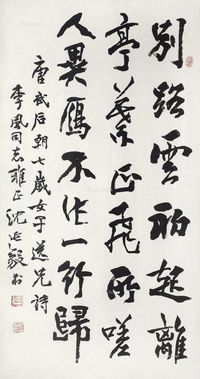 別路雲初起離
亭葉正飛所嗟
人異雁不作一行歸
唐武后朝七歲女子送兄詩
李風同志雅正沈延毅書